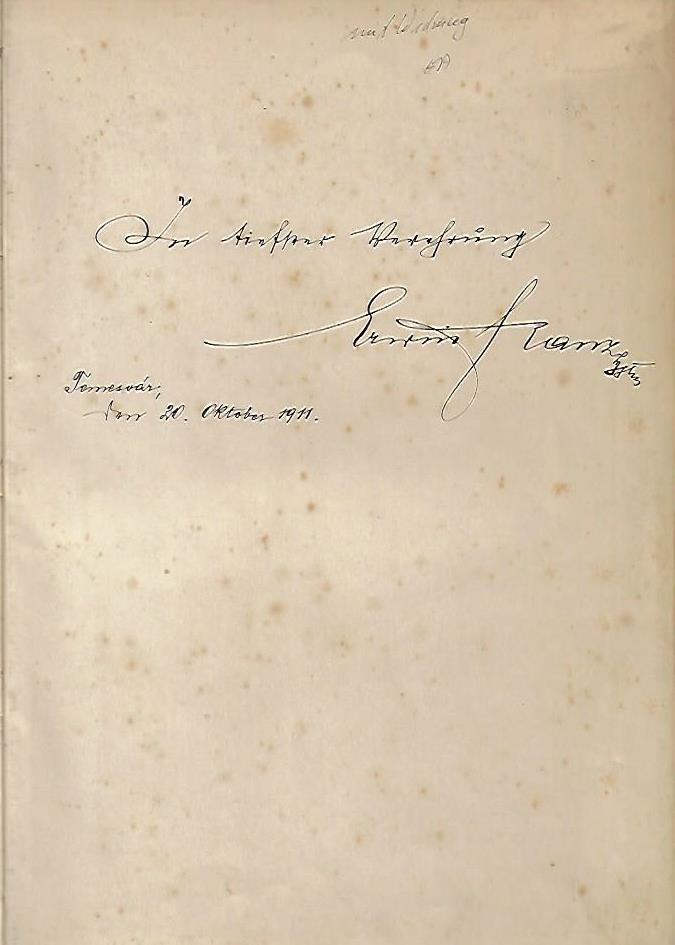 mit Widmung
In tiefster Verehrung
Erwin Franz
Temesvár,
den 20. Oktober 1911.